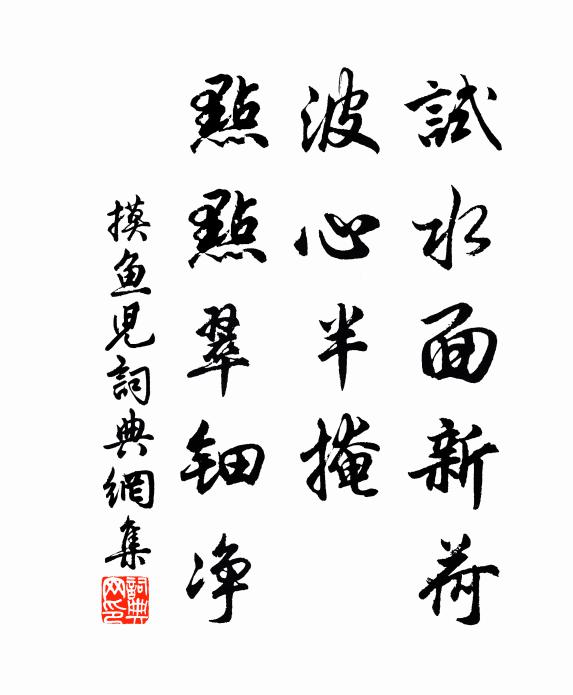 試水面新荷
波心半掩
點點翠鈿净
摸魚兒詞典網集
詞典網印